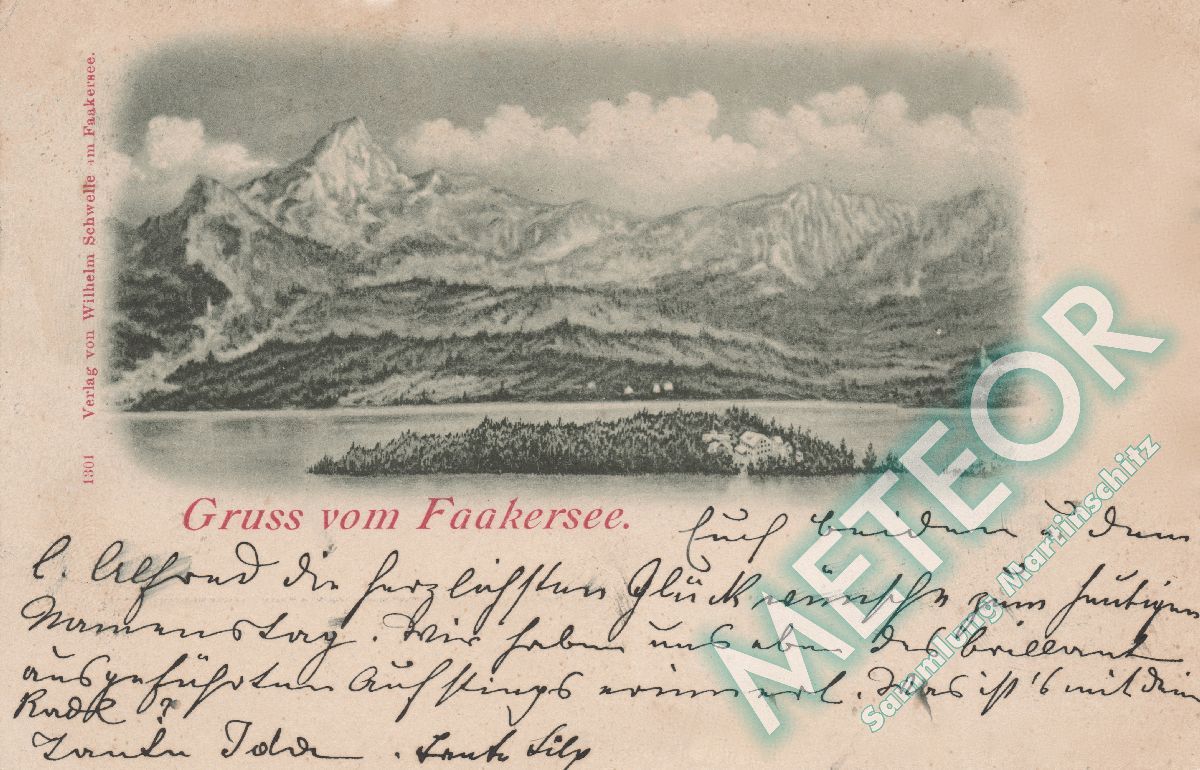 1301 Verlag von Wilhelm Schwelle am Faakersee.
Gruss vom Faakersee.
Euch beiden u dem
l. Alfred die herzlichsten Glückwünsche zum heutigen
Namenstag. Wir haben uns eben des brillant
ausgeführten Aufstiegs erinnert. Was ist's mit dem
Rade?
Tante Ida. Tante
METEOR
Sammlung Martinschitz